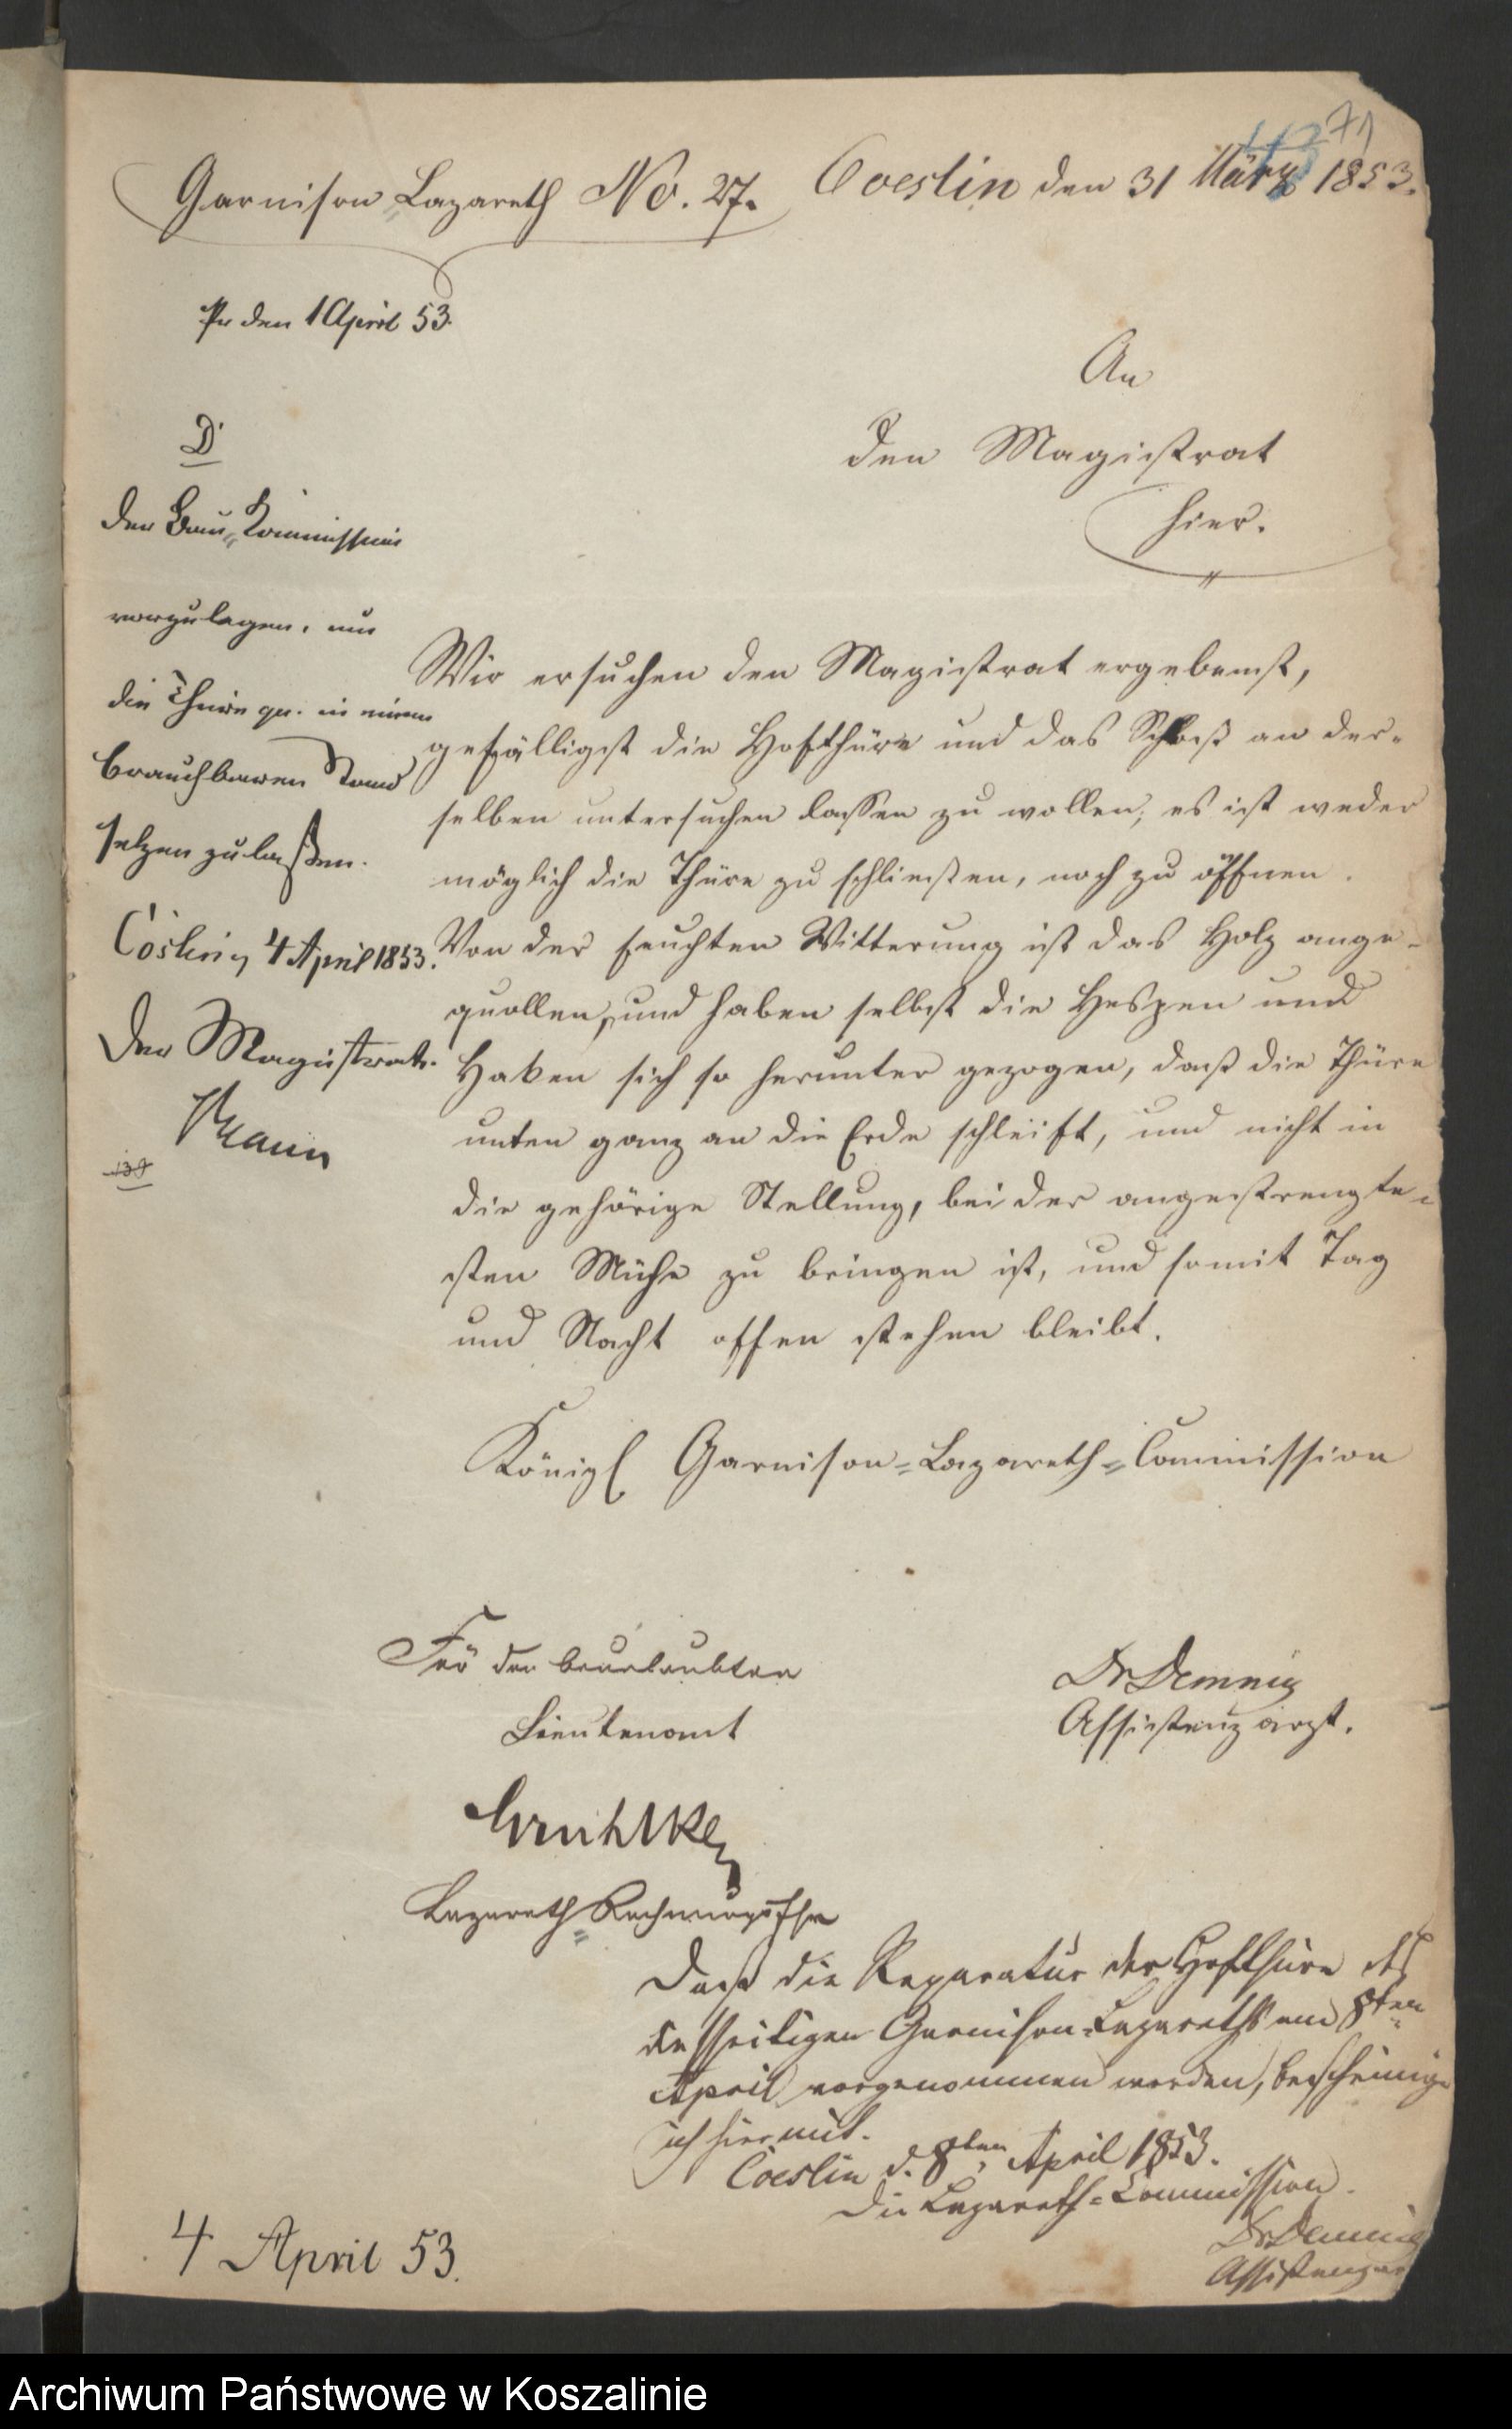 71
Garnison Lazareth No. 27.
Coeslin den 31 März 1853.
Pr den 1 April 53.
An
den Magistrat
hier.
D.
Der Bau-Kommission
vorzulegen, um
die Thüre qu. in einen
brauchbaren Stand
setzen zu laßen.
Cöslin, 4 April 1853.
Der Magistrat.
Braun
Wir ersuchen den Magistrat ergebenst,
gefälligst die Hofthüre und das Schloß an der-
selben untersuchen lassen zu wollen; es ist weder
möglich die Thüre zu schließen, noch zu öffnen.
Von der feuchten Witterung ist das Holz ange-
quollen, und haben selbst die Hespen und
Haken sich so herunter gezogen, daß die Thüre
unten ganz an die Erde schleift, und nicht in
die gehörige Stellung, bei der angestrengte-
sten Mühe zu bringen ist, und somit Tag
und Nacht offen stehen bleibt.
Königl Garnison-Lazareth-Commission
Für den beurlaubten
Lieutenant
Lazareth-Rechnungsfhr
Dr Demnig
Assistenzarzt.
Daß die Reparatur der Hofthüre des
diesseitigen Garnison-Lazareths am 8ten
April vorgenommen worden, bescheinige
ich hiermit.
Coeslin d. 8ten April 1853.
Die Lazareth-Commission.
Dr Demnig
4 April 53.
Archiwum Państwowe w Koszalinie